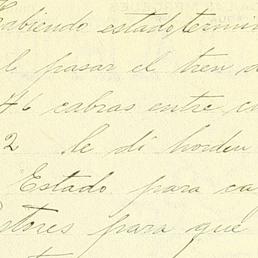 Habiendo estado termin
l pasar el tren d
46 cabras entre c
2 le di horden
Estado para ca
stores para que